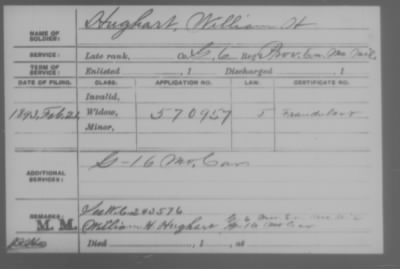 NAME OF SOLDIER: Hughart, William H
SERVICE: Late rank, Co. G, 6 Reg't Prov. En. Mo Mil.
TERM OF SERVICE: Enlisted , 1 Discharged , 1
DATE OF FILING. CLASS. APPLICATION NO. LAW. CERTIFICATE NO.
Invalid,
1893, Feb. 21 Widow, 570957 5
Minor,
ADDITIONAL SERVICES: G-16 Mo. Cav
REMARKS: 240576
M. M. William H Hughart G-16 Mo Cav
Died , 1 , at